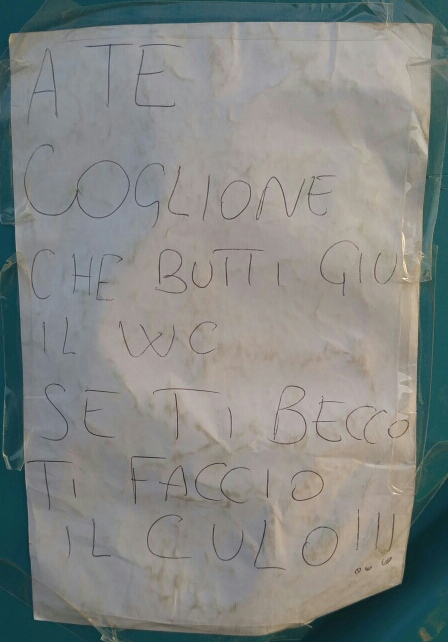 A TE
COGLIONE
CHE BUTTI GIU
IL WC
SE TI BECCO
TI FACCIO
IL CULO!!!